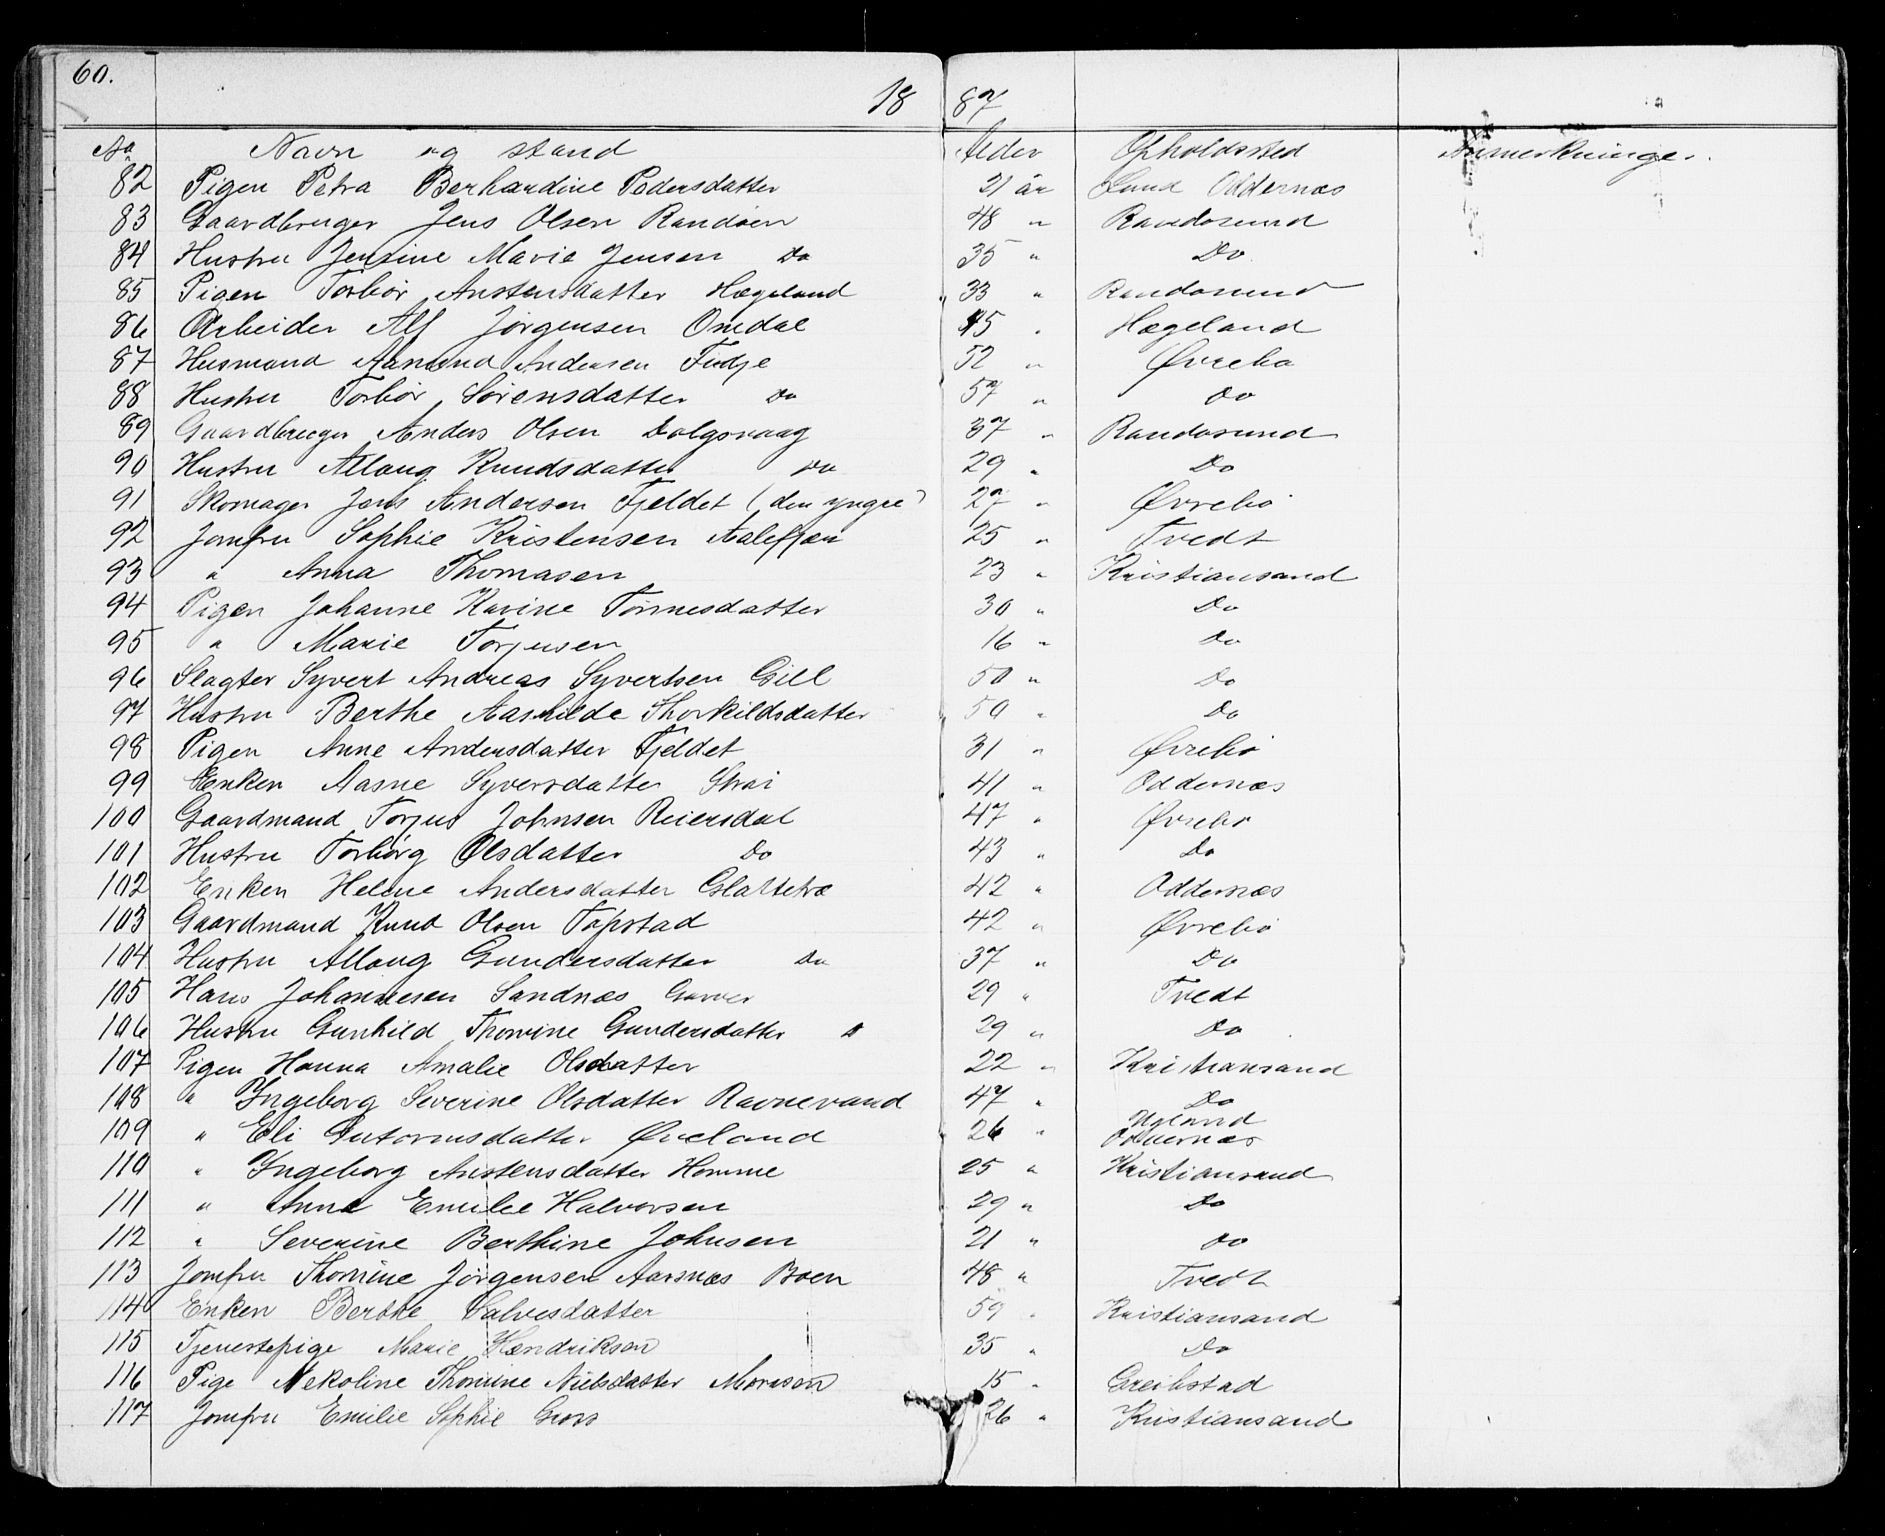 60.
18 87
No Navn og stand Alder Opholdssted Anmerkninger.
82 Pigen Petra Berhardine Pedersdatter 21 år Lund Oddernæs
83 Gaardbruger Jens Olsen Randøen 48 " Randøsund
84 Hustru Jensine Marie Jensen Do 35 " Do
85 Pigen Torbør Anstensdatter Hægeland 33 " Randøsund
86 Arbeider Alf Jørgensen Omdal 45 " Hægeland
87 Husmand Aanund Andersen Fidje 52 " Øvrebø
88 Hustru Torbør Sørensdatter Do 57 " Do
89 Gaardbruger Anders Olsen Dolgsvaag 37 " Randøsund
90 Hustru Allaug Knudsdatter Do 29 " Do
91 Skomager Jens Andersen Fjeldet (den yngre) 27 " Øvrebø
92 Jomfru Sophie Kristensen Aalefjær 25 " Tvedt
93 " Anna Thomasen 23 " Kristiansand
94 Pigen Johanne Karine Tønnesdatter 30 " Do
95 " Marie Torjusen 16 " Do
96 Slagter Syvert Andreas Syvertsen Gill 50 " Do
97 Hustru Berthe Aashilde Thorkildsdatter 50 " Do
98 Pigen Anne Andersdatter Fjeldet 31 " Øvrebø
99 Enken Aasne Syversdatter Strai 41 " Oddernæs
100 Gaardmand Torjus Johnsen Reiersdal 47 " Øvrebø
101 Hustru Torbørg Olsdatter Do 43 " Do
102 Enken Helene Andersdatter Glattetræ 42 " Oddernæs
103 Gaardmand Knud Olsen Tapstad 42 " Øvrebø
104 Hustru Allaug Gundersdatter Do 37 " Do
105 Hans Johannesen Sandnæs Garver 29 " Tvedt
106 Hustru Gunhild Thomine Gundersdatter 29 " Do
107 Pigen Hanna Amalie Olsdatter 22 " Kristiansand
108 " Ingeborg Severine Olsdatter Ravnevand 47 " Do
109 " Eli Gutormsdatter Øveland 26 " Øgland Oddernæs
110 " Ingeborg Anstensdatter Homme 25 " Kristiansand
111 " Anne Emilie Halvorsen 29 " Do
112 " Severine Berthine Johnsen 21 " Do
113 Jomfru Thomine Jørgensen Aarsnæs Boen 48 " Tvedt
114 Enken Berthe Salvesdatter 59 " Kristiansand
115 Tjenestepige Marie Hændriksen 35 " Do
116 Pige Nekoline Thomine Nielsdatter Monsson 15 " Greibstad
117 Jomfru Emilie Sophie Gross 26 " Kristiansand